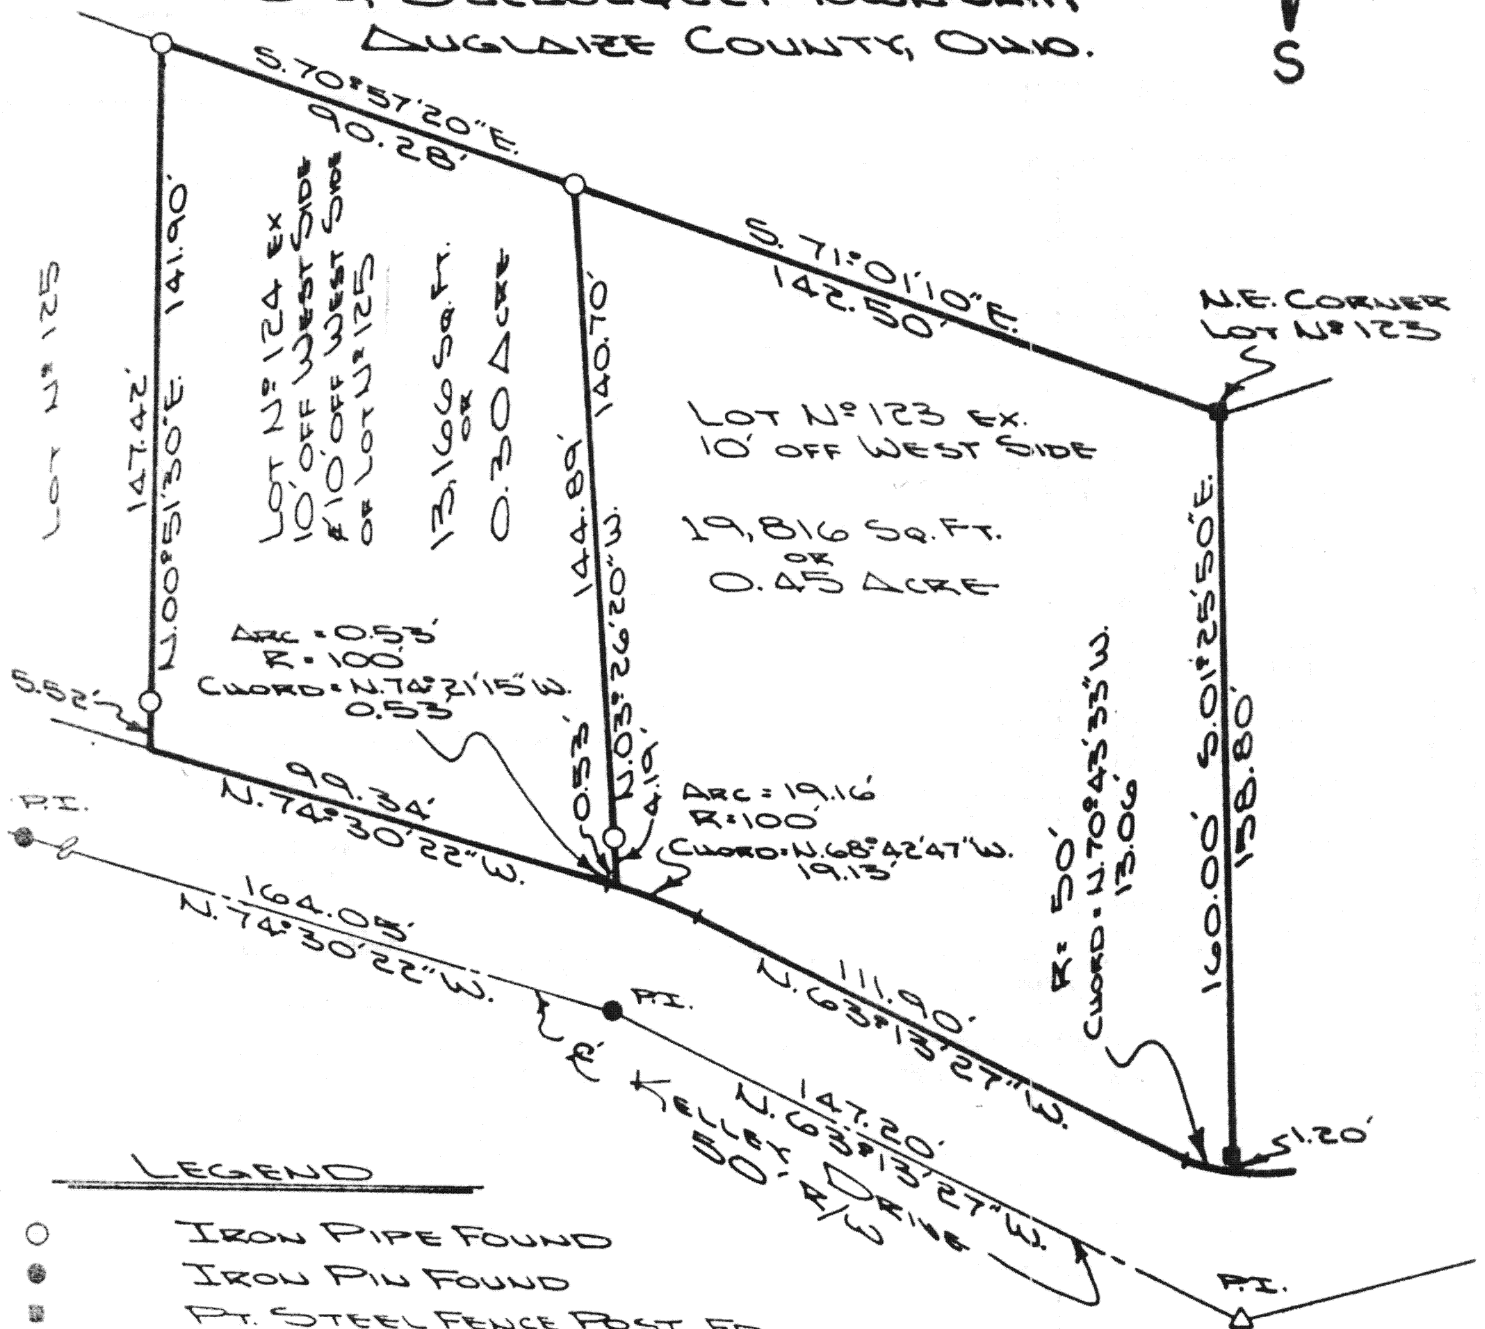 AUGLAIZE COUNTY, OHIO.
S
S.70°57'20"E.
90.28'
S. 71°01'10"E.
142.50'
N.E. CORNER
LOT Nº 123
LOT Nº 125
147.42'
141.90'
N.00°51'30"E.
LOT Nº 124 EX
10' OFF WEST SIDE
& 10' OFF WEST SIDE
OF LOT Nº 125
13,166 SQ.FT.
OR
0.30 ACRE
144.89'
140.70'
N.03°26'20"W.
LOT Nº 123 EX.
10' OFF WEST SIDE
19,816 SQ.FT.
OR
0.45 ACRE
160.00'
S.01°25'50"E.
158.80'
ARC = 0.53'
R = 100'
CHORD = N.74°21'15"W.
0.53'
5.52'
0.53'
4.19'
ARC = 19.16'
R = 100'
CHORD = N.68°42'47"W.
19.13'
R = 50'
CHORD = N.70°43'33"W.
13.06'
99.34'
N.74°30'22"W.
P.I.
164.05'
N.74°30'22"W.
P.I.
111.90'
N.63°13'27"W.
147.20'
N.63°13'27"W.
℄ KELLEY DRIVE
50' R/W
1.20'
P.I.
LEGEND
IRON PIPE FOUND
IRON PIN FOUND
PT. STEEL FENCE POST